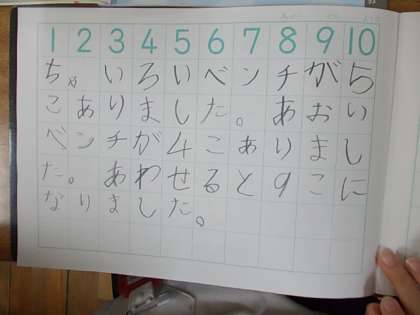 1 2 3 4 5 6 7 8 9 10
ちゃいろいベンチが5
こありました。あおい
ベンチが4こありまし
た。あわせると9こに
なりました。